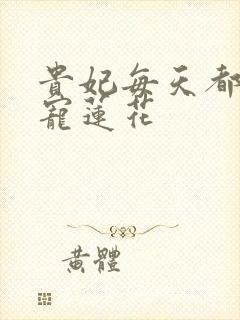 貴妃每天都
寵蓮花
黃體